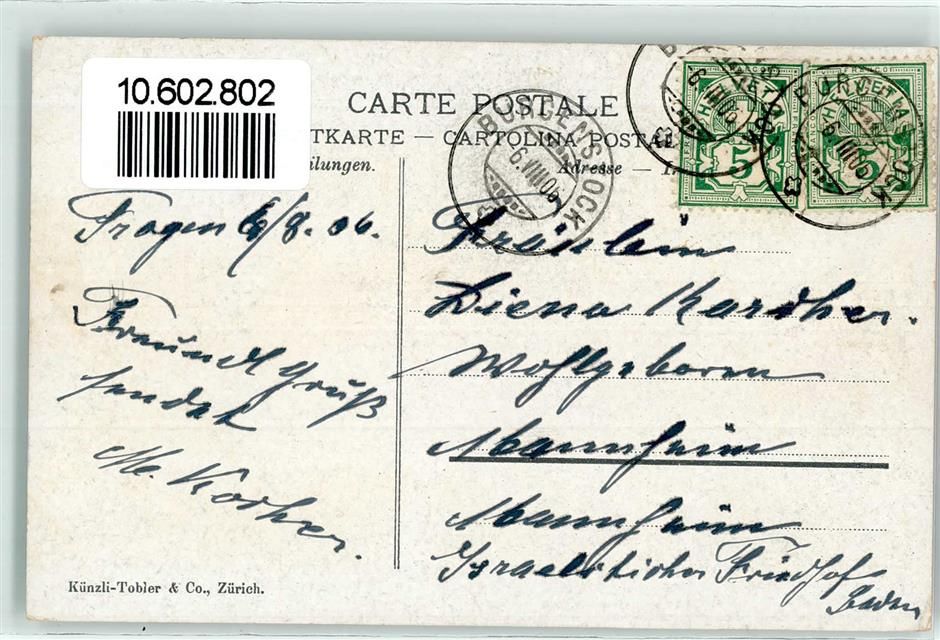 10.602.802
CARTE POSTALE
TKARTE — CARTOLINA POSTAL
ilungen.
Adresse —
BÜRGENSTOCK
6.VIII.06
HELVETIA
5
5
Tragen 6/8. 06.
Freundl Gruß
sendet
M. Korher.
Fräulein
Liena Karsher.
Wohlgeboren
Mannheim
Mannheim
Israelitischer Friedhof
Baden
Künzli-Tobler & Co., Zürich.